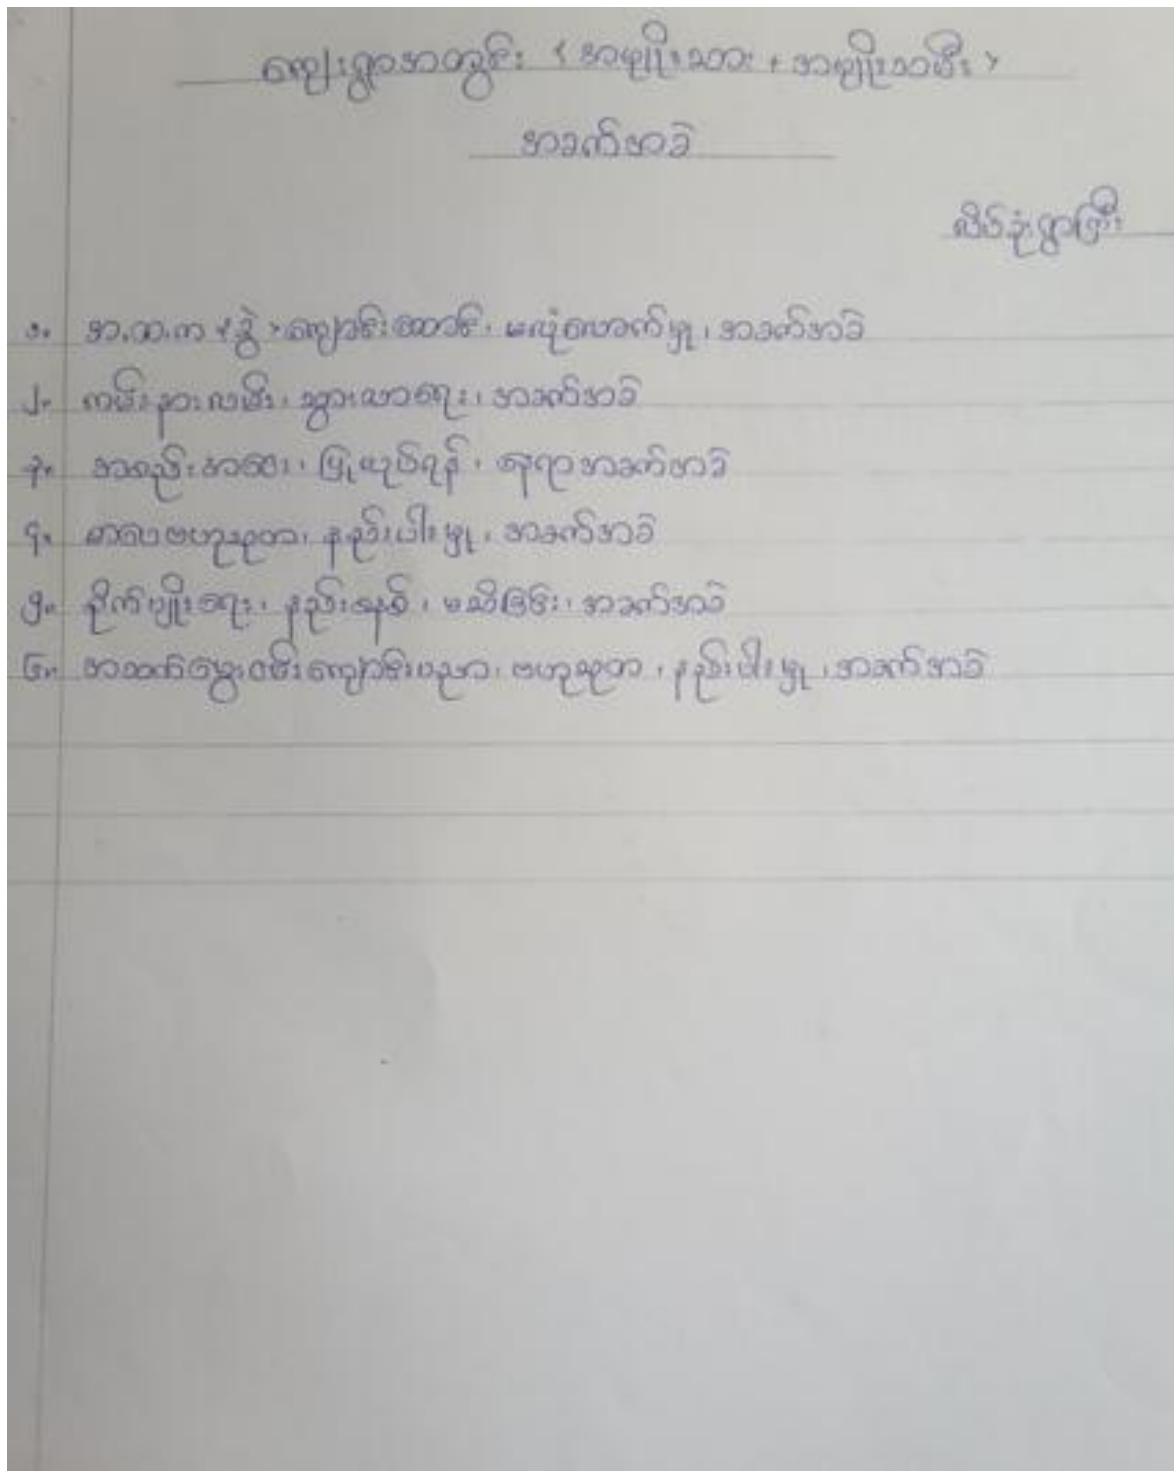 ကျေးရွာအတွင်း < အမျိုးသား + အမျိုးသမီး >
အခက်အခဲ
လိပ်ခုံးရွာကြီး
၁။ အ.ထ.က < ခွဲ > ကျောင်းဆောင်၊ မလုံလောက်မှု၊ အခက်အခဲ
၂။ ကမ်းနားလမ်း၊ သွားလာရေး၊ အခက်အခဲ
၃။ အစည်းအဝေး၊ ပြုလုပ်ရန်၊ နေရာအခက်အခဲ
၄။ စာပေဗဟုသုတ၊ နည်းပါးမှု၊ အခက်အခဲ
၅။ စိုက်ပျိုးရေး၊ နည်းစနစ်၊ မသိခြင်း၊ အခက်အခဲ
၆။ အသက်မွေးဝမ်းကျောင်းပညာ၊ ဗဟုသုတ၊ နည်းပါးမှု၊ အခက်အခဲ